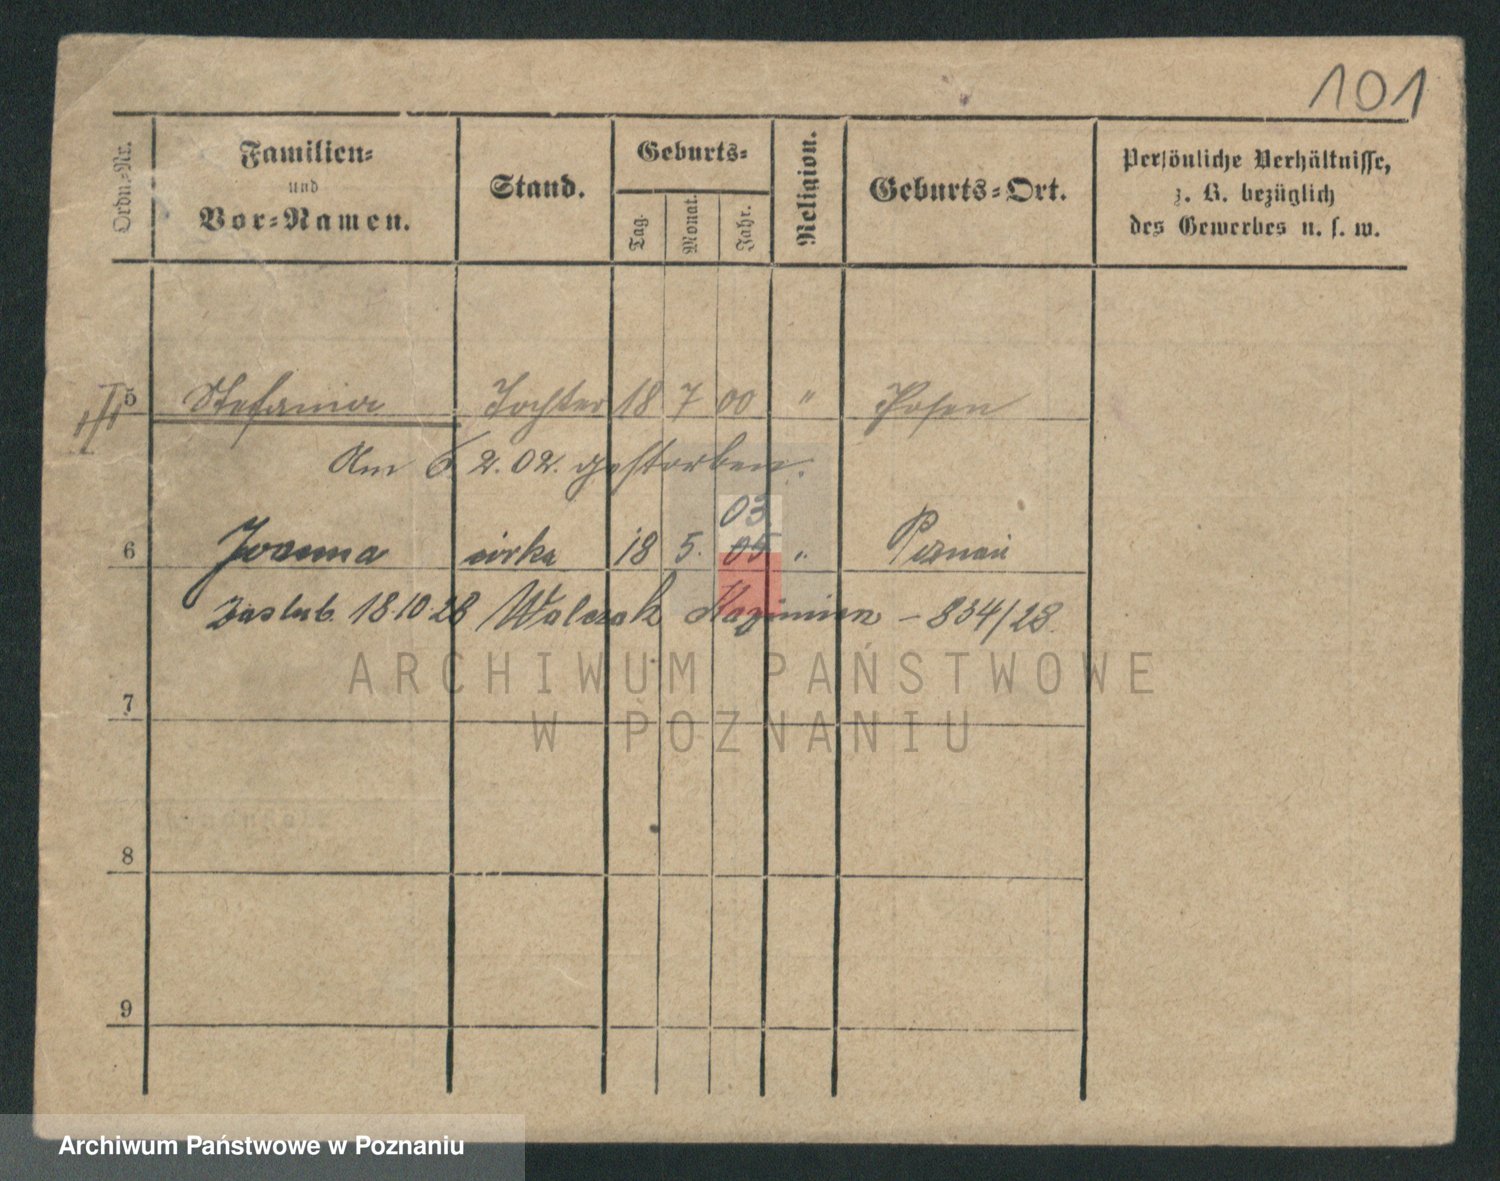 101
Ordn.-Nr. Familien- und Vor-Namen. Stand. Geburts- Tag. Monat. Jahr. Religion. Geburts-Ort. Persönliche Verhältnisse, z. B. bezüglich des Gewerbes u. s. w.
5 Stefania Tochter 18 7 00 " Posen
Am 6. 2. 02. gestorben.
03.
6 Joanna córka 18 5. 05 " Poznań
Zaślub. 18.10.28 Walczak Kazimierz – 834/28.
ARCHIWUM PAŃSTWOWE
W POZNANIU
7
8
9
Archiwum Państwowe w Poznaniu